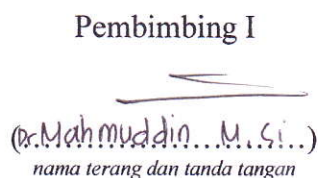 Pembimbing I
(Dr. Mahmuddin M.Si)
nama terang dan tanda tangan